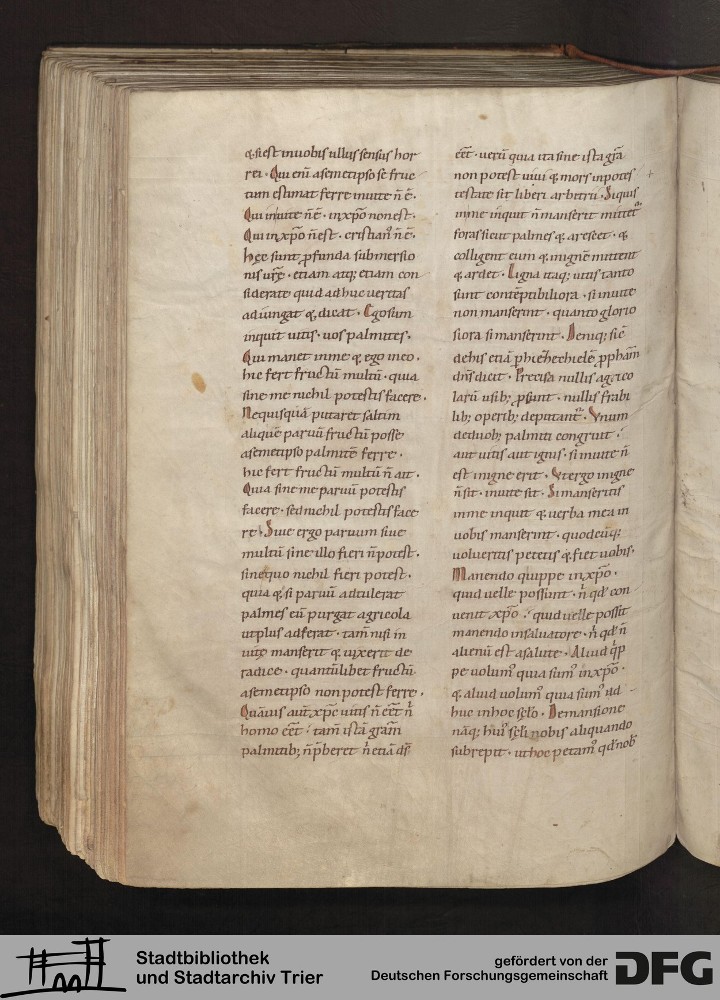 & si est in uobis ullus sensus hor
rei · Qui eni͞ a semetipso se fruc
tum estimat ferre in uite n͞ e͞ ·
Qui in uite n͞ e͞ · in xp͞o non est ·
Qui in xp͞o n͞ est · cristian᷒ n͞ e͞ ·
hęc sunt ꝓfunda submersio
nis ur͞ę · etiam atq; etiam con
siderate quid adhuc ueritas
adiungat & dicat · Ego sum
inquit uitis · uos palmites ·
Qui manet in me & ego in eo ·
hic fert fructu͞ multu͞ · quia
sine me nichil potestis facere ·
Ne quisqua͞ putaret saltim
alique͞ paruu͞ fructu͞ posse
a semetipso palmite͞ ferre ·
hic fert fructu͞ multu͞ n͞ ait ·
Quia sine me paruu͞ potestis
facere · sed nichil potestis face
re · Siue ergo paruum siue
multu͞ sine illo fieri n͞ potest ·
sine quo nichil fieri potest ·
quia & si paruu͞ adtulerat
palmes eu͞ purgat agricola
ut plus adferat · tam͞ nisi in
uite manserit & uixerit de
radice · quantu͞libet fructu͞
a semetipso non potest ferre ·
Qua͞uis aut͞ xp͞c uitis n͞ e͞et n͞
homo e͞et · tam͞ ista͞ gram͞
palmitib; n͞ p͞beret n͞ etia͞ ds͞
e͞et · ueru͞ quia ita sine ista gr͞a
non potest uiui & mors in potes
testate sit liberi arbitrii · Siquis
in me inquit n͞ manserit mittet᷒
foras sicut palmes & arescet · &
colligent eum & in igne͞ mittent
& ardet · Ligna itaq; uitis tanto
sunt conte͞ptibiliora · si in uite
non manserint · quanto glorio
siora si manserint · Deniq; sic͞
de his etia͞ p hiezechiele͞ ꝓpham͞
dn͞s dicit · Precisa nullis agrico
laru͞ usib; ꝓsunt · nullis frabi
lib; operib; deputant᷒ · Vnum
de duob; palmiti congruit ·
aut uitis aut ignis · si in uite n͞
est in igne erit · Vt ergo in igne
n͞ sit · in uite sit · Si manseritis
in me inquit & uerba mea in
uobis manserint · quodcu͞q;
uolueritis petetis & fiet uobis ·
Manendo quippe in xp͞o ·
quid uelle possunt · n͞ qd͞ con
uenit xp͞o · quid uelle possit
manendo in saluatore · n͞ qd͞ n͞
alienu͞ est a salute · Aliud q͞p
pe uolum᷒ quia sum᷒ in xp͞o ·
& aliud uolum᷒ quia sum᷒ ad
huc in hoc sc͞lo · De mansione
na͞q; hui᷒ sc͞li nobis aliquando
subrepit · ut hoc petam᷒ qd͞ nob͞
Stadtbibliothek
und Stadtarchiv Trier
gefördert von der
Deutschen Forschungsgemeinschaft
DFG